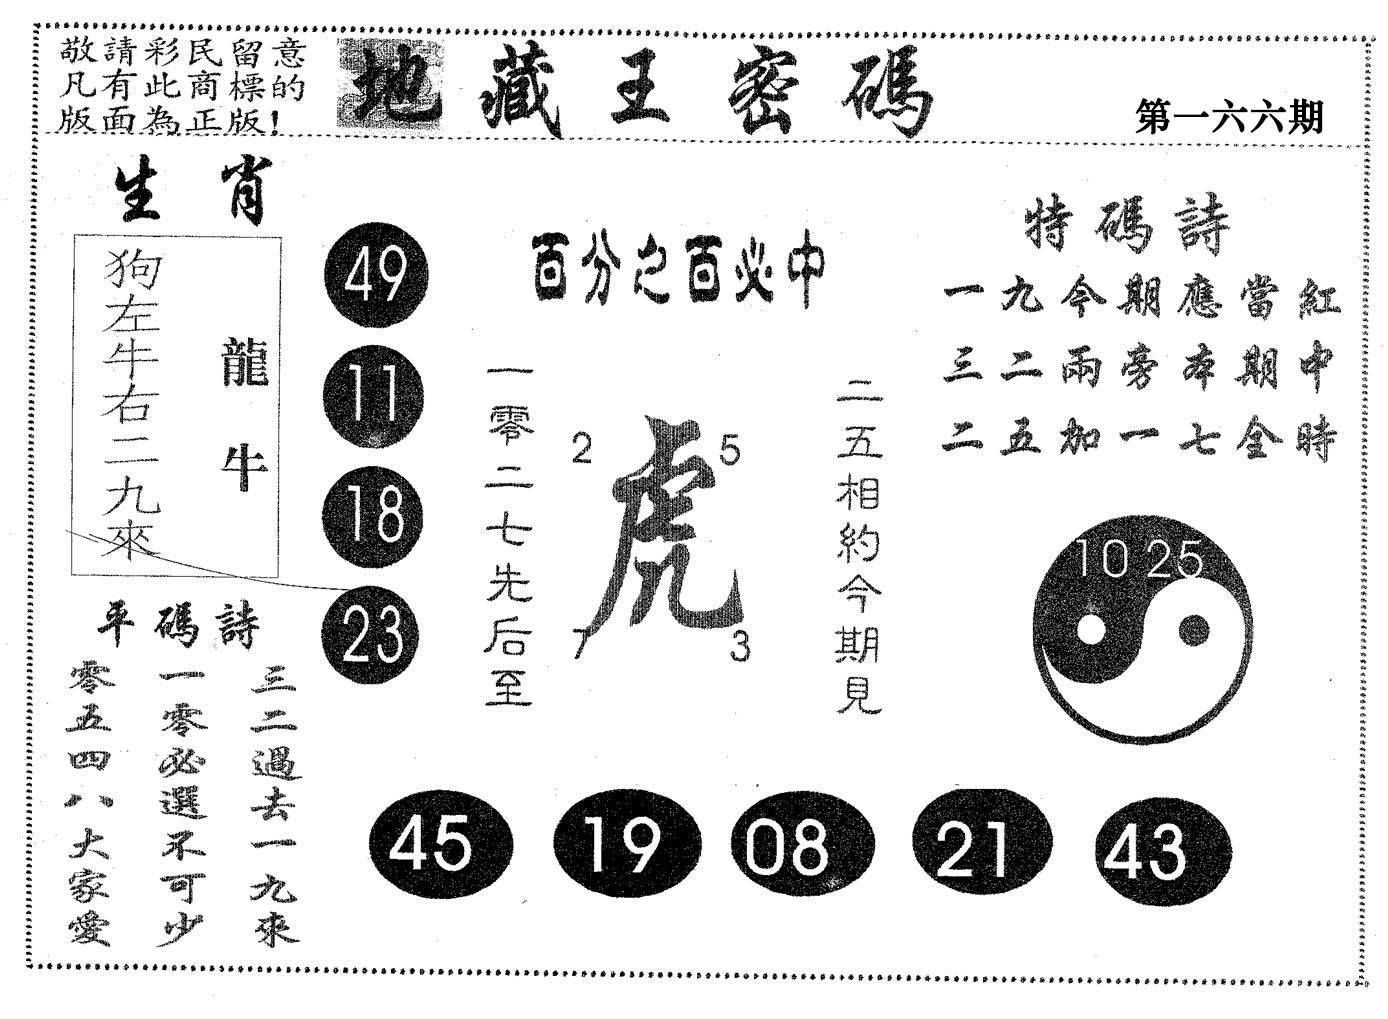 敬請彩民留意
凡有此商標的
版面為正版!
地藏王密碼
第一六六期
生肖
狗左牛右二九來
龍牛
49
11
18
23
百分之百必中
一零二七先后至
虎
2
5
7
3
二五相約今期見
特碼詩
一九今期應當紅
三二兩旁本期中
二五加一七全時
10 25
平碼詩
三二過去一九來
一零必選不可少
零五四八大家愛
45
19
08
21
43